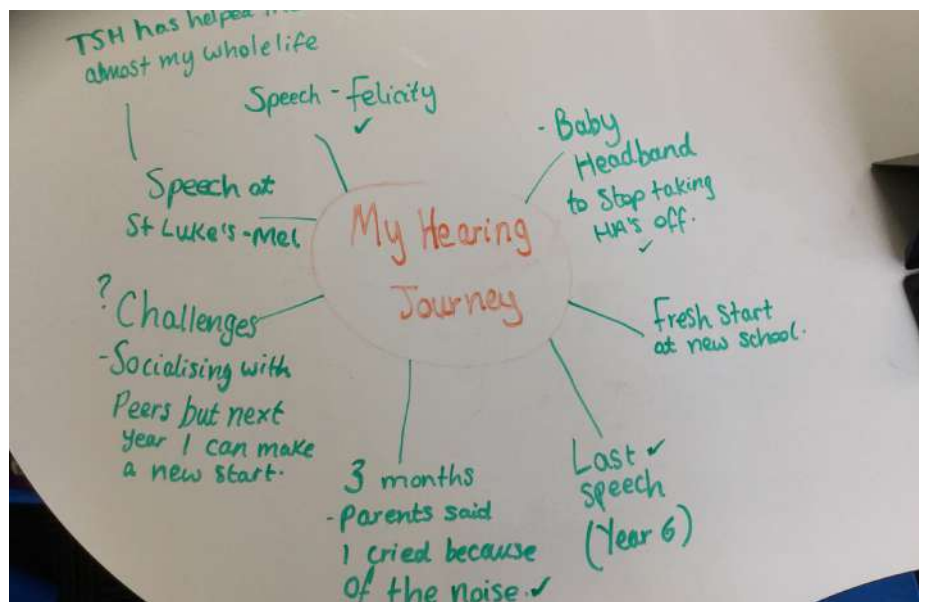 TSH has helped
almost my whole life
Speech - Felicity ✓
Speech at
St Luke's - Mel
My Hearing
Journey
- Baby
Headband
to stop taking
HA's off.
✓
? Challenges
- Socialising with
Peers but next
year I can make
a new start.
Fresh start
at new school.
3 months
- Parents said
I cried because
of the noise. ✓
Last ✓
speech
(Year 6)